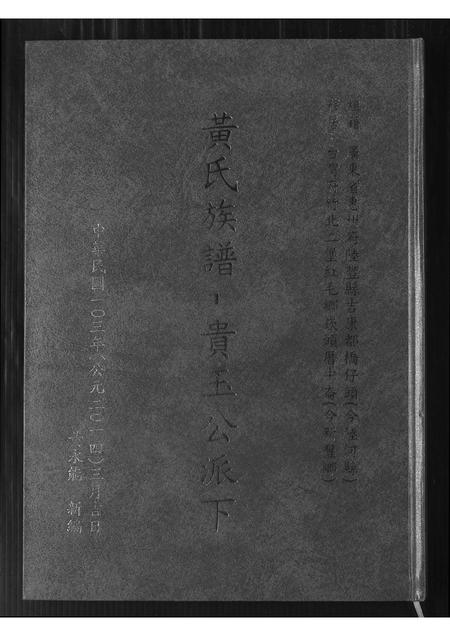 祖籍:廣東省惠州府陸豐縣吉康都橋仔頭(今陸河縣)
移居:台灣府竹北二堡紅毛鄉崁頭厝十六(今新豐鄉)
黃氏族譜-貴玉公派下
中華民國一〇三年(公元二〇一四)三月吉日
永能 新編